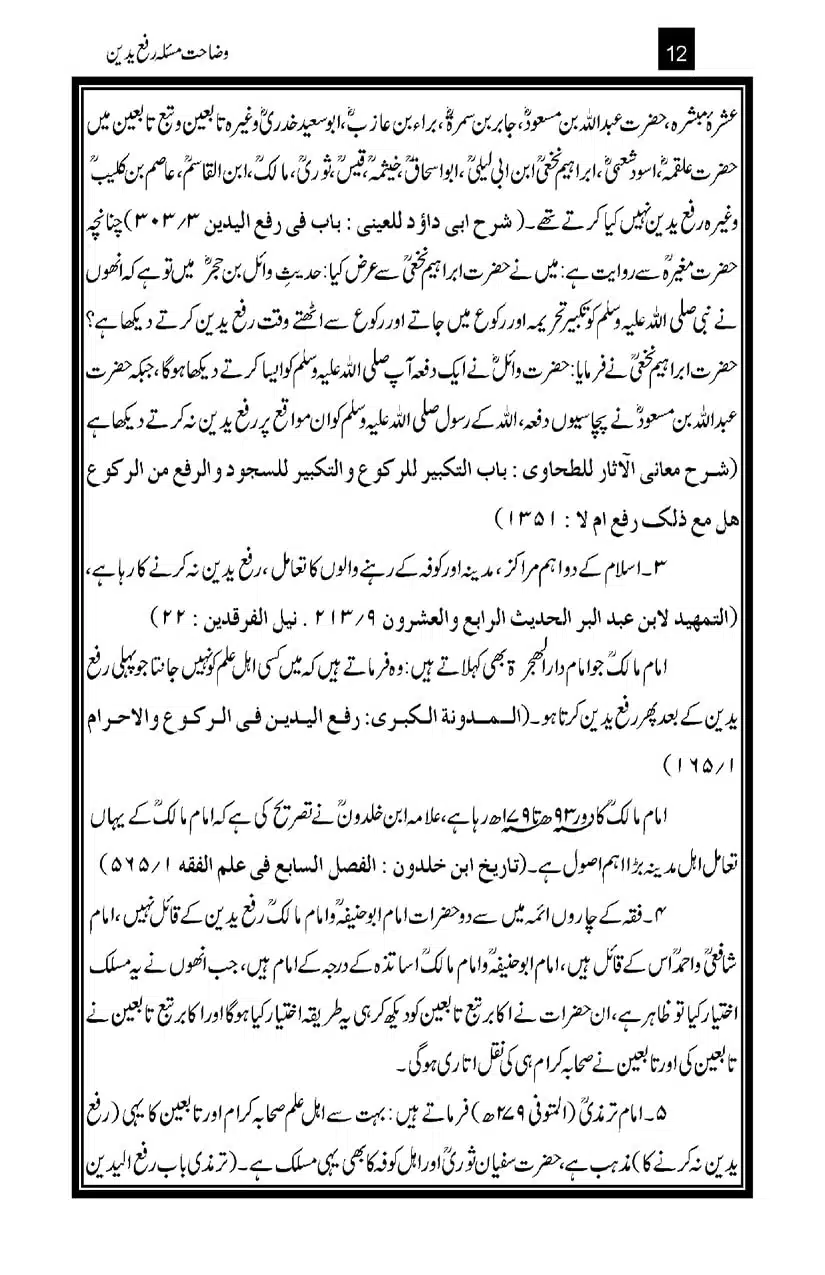 وضاحت مسئلہ رفع یدین
12
عشرۂ مبشرہ، حضرت عبداللہ بن مسعودؓ، جابر بن سمرۃؓ، براء بن عازبؓ، ابوسعید خدریؓ وغیرہ تابعین وتبع تابعین میں
حضرت علقمہؒ، اسود شعبیؒ، ابراہیم نخعیؒ ابن ابی لیلیٰؒ، ابواسحاقؒ، خیثمہؒ، قیسؒ، ثوریؒ، مالکؒ، ابن القاسمؒ، عاصم بن کلیبؒ
وغیرہ رفع یدین نہیں کیا کرتے تھے۔(شرح ابی داؤد للعینی : باب فی رفع الیدین ۳/۳۰۳) چنانچہ
حضرت مغیرہؒ سے روایت ہے: میں نے حضرت ابراہیم نخعیؒ سے عرض کیا: حدیثِ وائل بن حجرؓ میں تو ہے کہ انھوں
نے نبی صلی اللہ علیہ وسلم کو تکبیر تحریمہ اور رکوع میں جاتے اور رکوع سے اٹھتے وقت رفع یدین کرتے دیکھا ہے؟
حضرت ابراہیم نخعیؒ نے فرمایا: حضرت وائلؓ نے ایک دفعہ آپ صلی اللہ علیہ وسلم کو ایسا کرتے دیکھا ہوگا، جبکہ حضرت
عبداللہ بن مسعودؓ نے پچاسیوں دفعہ، اللہ کے رسول صلی اللہ علیہ وسلم کو ان مواقع پر رفع یدین نہ کرتے دیکھا ہے
(شرح معانی الآثار للطحاوی : باب التکبیر للرکوع والتکبیر للسجود والرفع من الرکوع
هل مع ذلک رفع ام لا : ۱۳۵۱)
۳۔اسلام کے دو اہم مراکز، مدینہ اور کوفہ کے رہنے والوں کا تعامل، رفع یدین نہ کرنے کا رہا ہے،
(التمهید لابن عبد البر الحدیث الرابع والعشرون ۹/۲۱۳ . نیل الفرقدین : ۲۲)
امام مالکؒ جو امام دارالھجرۃ بھی کہلاتے ہیں: وہ فرماتے ہیں کہ میں کسی اہل علم کو نہیں جانتا جو پہلی رفع
یدین کے بعد پھر رفع یدین کرتا ہو۔(المدونة الکبری: رفع الیدین فی الرکوع والاحرام
۱/۱۶۵)
امام مالکؒ کا دور ۹۳ھ تا ۱۷۹ھ رہا ہے، علامہ ابن خلدونؒ نے تصریح کی ہے کہ امام مالکؒ کے یہاں
تعامل اہل مدینہ بڑا اہم اصول ہے۔(تاریخ ابن خلدون : الفصل السابع فی علم الفقه ۱/۵۶۵)
۴۔فقہ کے چاروں ائمہ میں سے دو حضرات امام ابوحنیفہؒ وامام مالکؒ رفع یدین کے قائل نہیں، امام
شافعیؒ واحمدؒ اس کے قائل ہیں، امام ابوحنیفہؒ وامام مالکؒ اساتذہ کے درجہ کے امام ہیں، جب انھوں نے یہ مسلک
اختیار کیا تو ظاہر ہے، ان حضرات نے اکابر تبع تابعین کو دیکھ کر ہی یہ طریقہ اختیار کیا ہوگا اور اکابر تبع تابعین نے
تابعین کی اور تابعین نے صحابہ کرام ہی کی نقل اتاری ہوگی۔
۵۔امام ترمذیؒ (المتوفی ۲۷۹ھ) فرماتے ہیں: بہت سے اہل علم صحابہ کرام اور تابعین کا یہی (رفع
یدین نہ کرنے کا) مذہب ہے، حضرت سفیان ثوریؒ اور اہل کوفہ کا بھی یہی مسلک ہے۔(ترمذی باب رفع الیدین